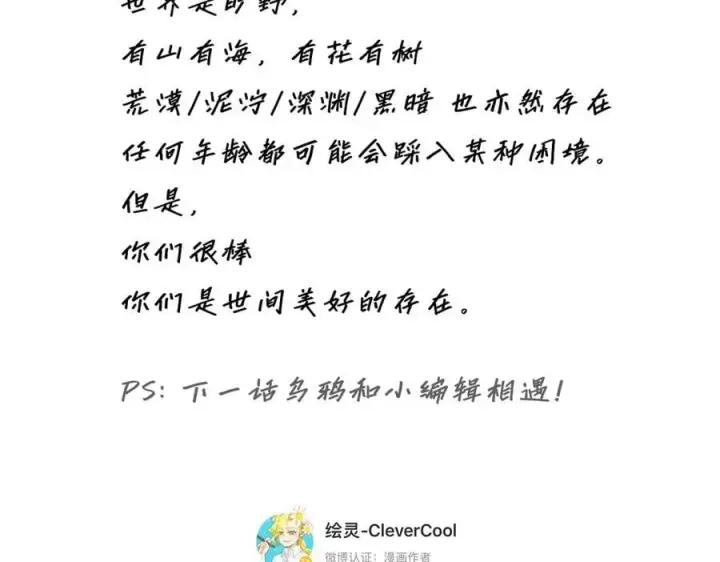 世界是旷野，
有山有海，有花有树
荒漠/泥泞/深渊/黑暗 也亦然存在
任何年龄都可能会踩入某种困境。
但是，
你们很棒
你们是世间美好的存在。
PS: 下一话乌鸦和小编辑相遇！
绘灵-CleverCool
微博认证：漫画作者